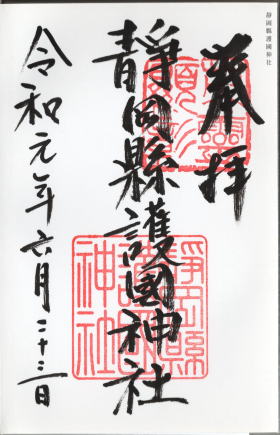 靜岡縣護國神社
奉拝
靜岡縣護國神社
令和元年六月二十三日
靜岡縣護國神社